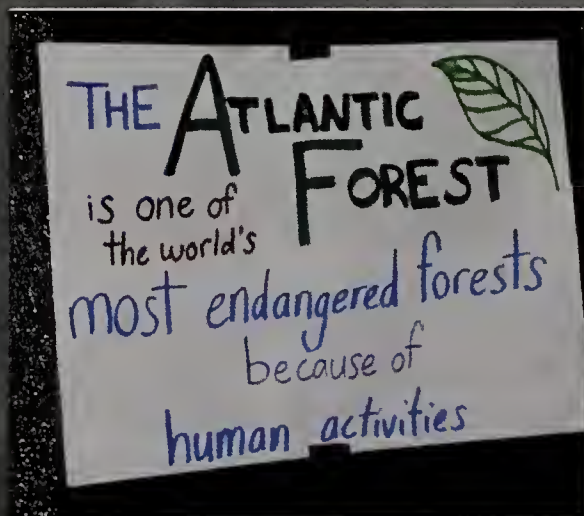 THE ATLANTIC
FOREST
is one of
the world's
most endangered forests
because of
human activities